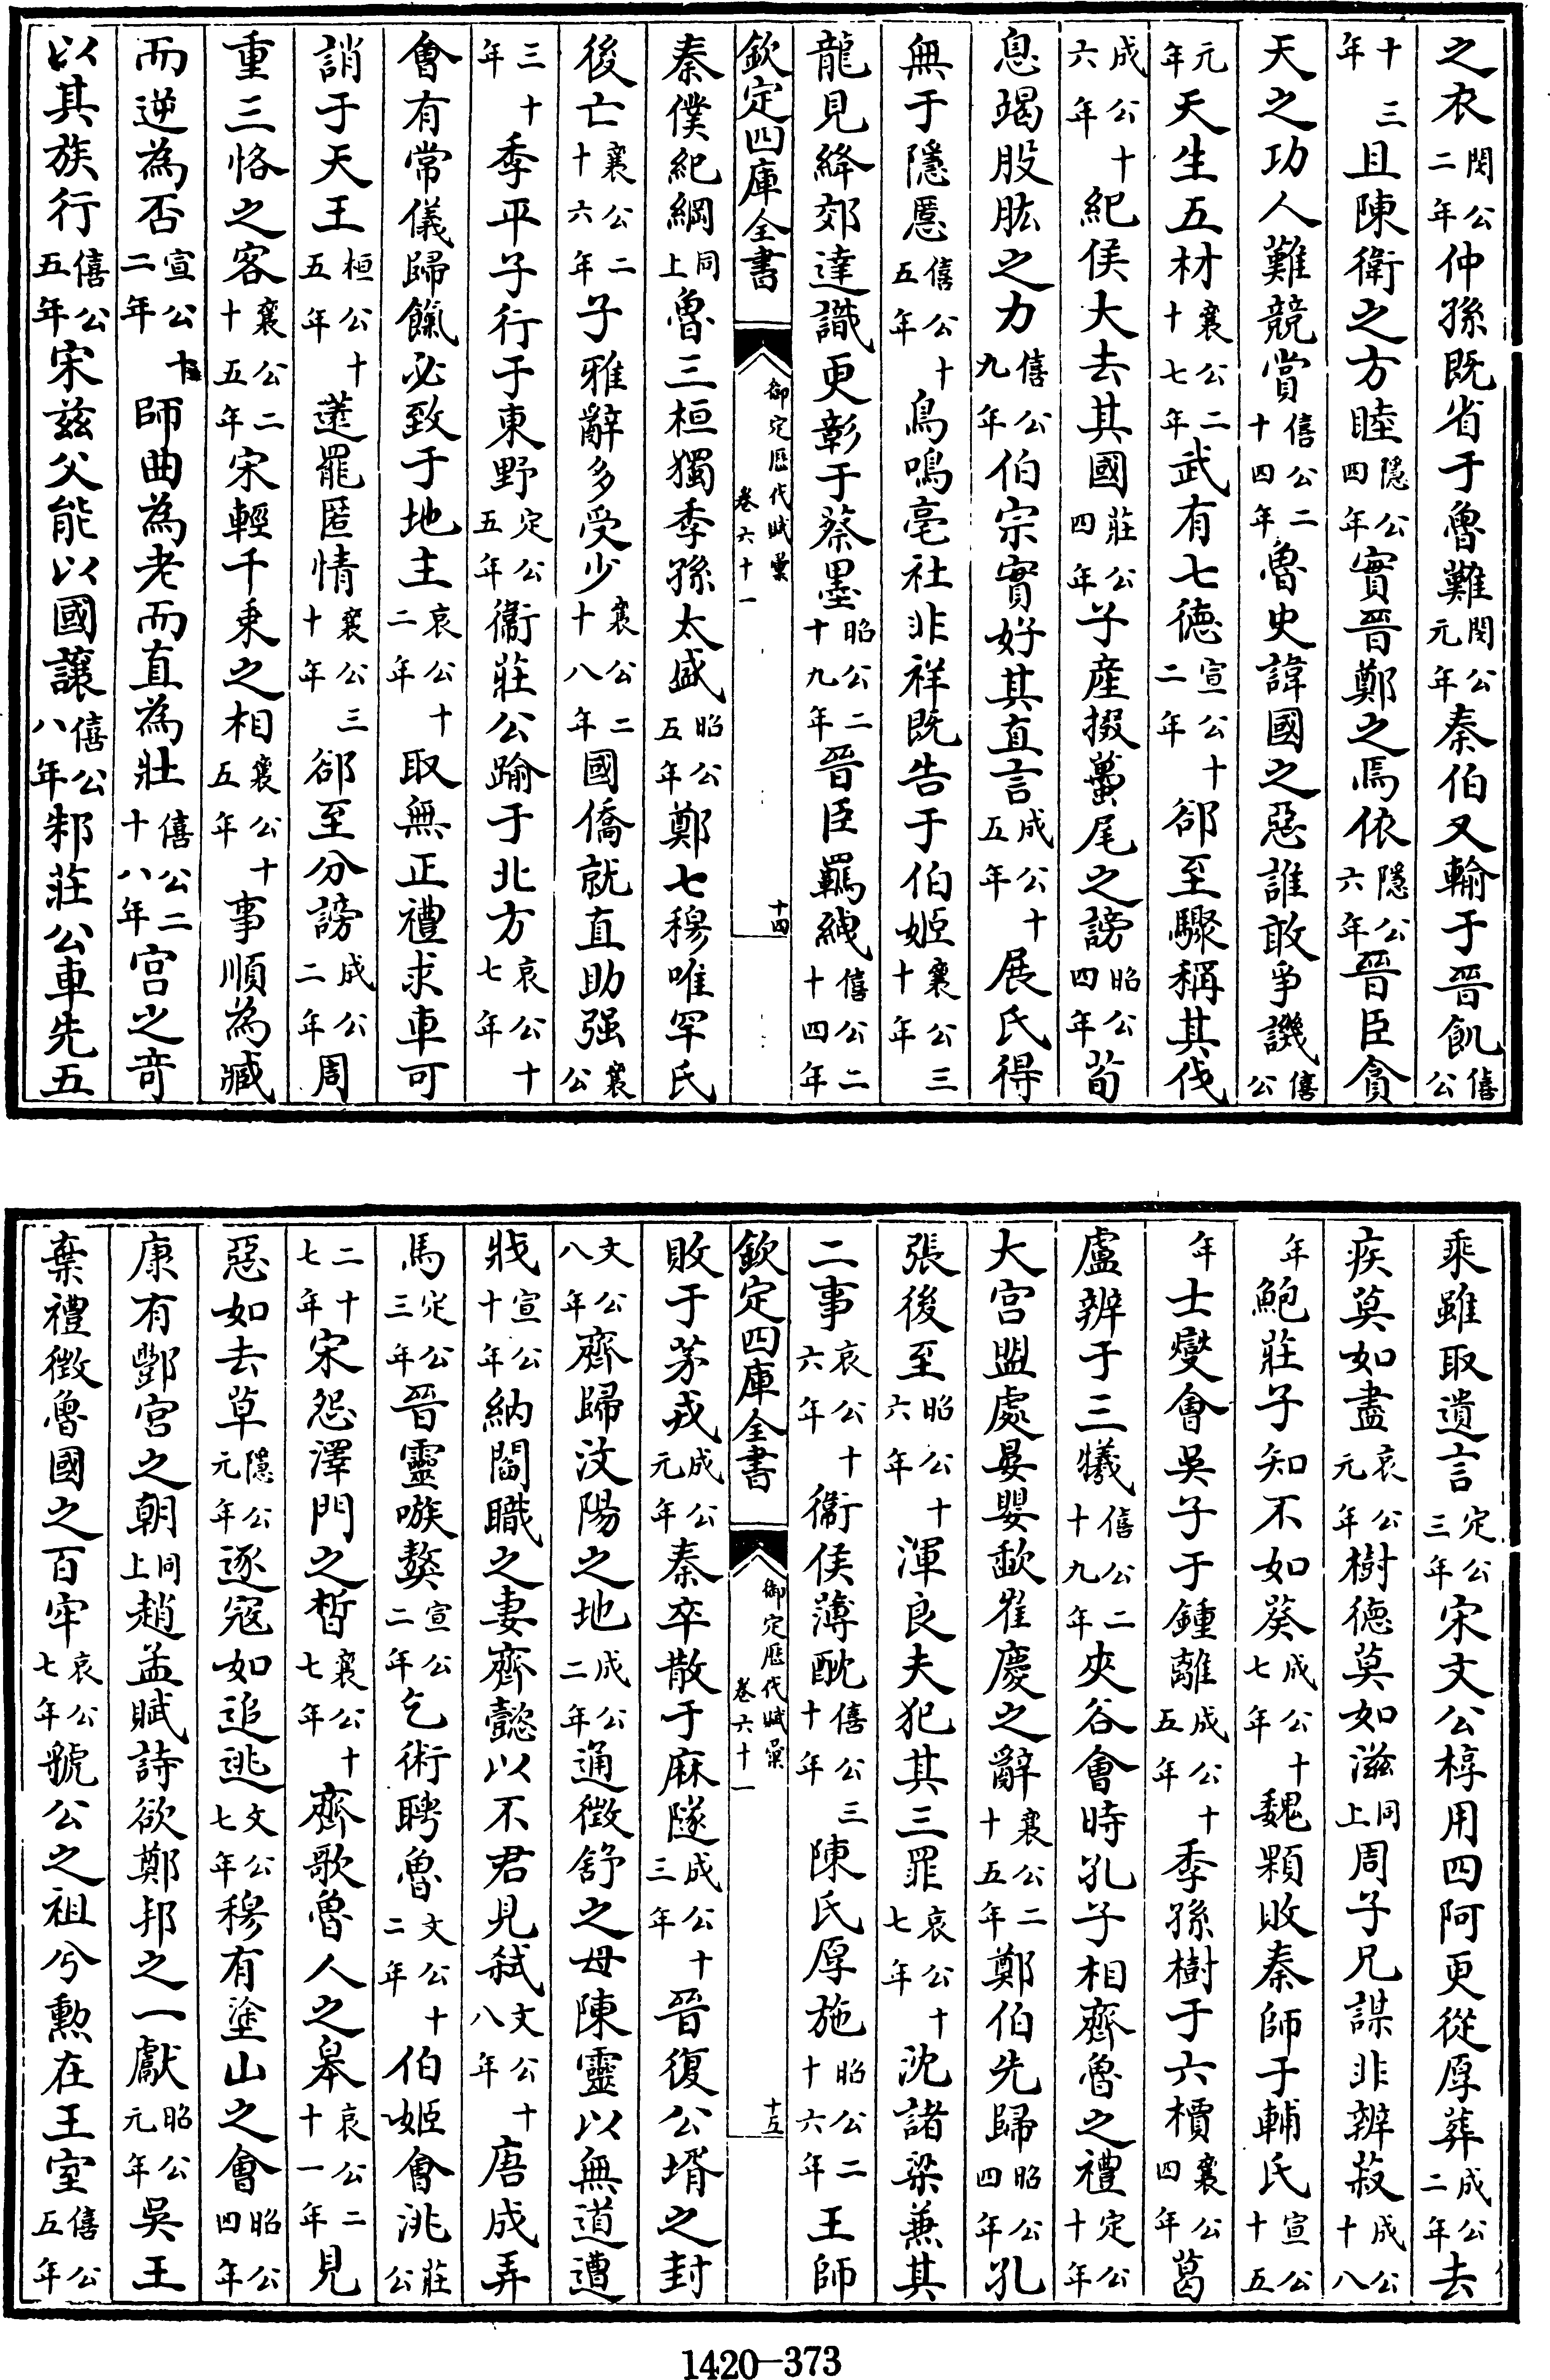 之衣閔公二年仲孫既省于魯難閔公元年秦伯又輸于晉飢僖公
十三年且陳衛之方睦隱公四年實晉鄭之焉依隱公六年晉臣貪
天之功人難競賞僖公二十四年魯史諱國之惡誰敢爭譏僖公
元年天生五材襄公二十七年武有七德宣公十二年郤至驟稱其伐
成公十六年紀侯大去其國莊公四年子産掇蠆尾之謗昭公四年荀
息竭股肱之力僖公九年伯宗實好其直言成公十五年展氏得
無于隱慝僖公十五年鳥鳴亳社非祥既告于伯姬襄公三十年
龍見絳郊達識更彰于蔡墨昭公二十九年晉臣羈絏僖公二十四年
欽定四庫全書 御定歷代賦彙 卷六十一 十四
秦僕紀綱同上魯三桓獨季孫太盛昭公五年鄭七穆唯罕氏
後亡襄公二十六年子雅辭多受少襄公二十八年國僑就直助强襄公
三十年季平子行于東野定公五年衞莊公踰于北方哀公十七年
會有常儀歸餼必致于地主哀公十二年取無正禮求車可
誚于天王桓公十五年薳罷匿情襄公三十年郤至分謗成公二年周
重三恪之客襄公二十五年宋輕千乘之相襄公十五年事順為臧
而逆為否宣公十二年師曲為老而直為壯僖公二十八年宮之奇
以其族行僖公五年宋茲父能以國讓僖公八年邾莊公車先五
乘雖取遺言定公三年宋文公椁用四阿更從厚葬成公二年去
疾莫如盡哀公元年樹德莫如滋同上周子兄謀非辨菽成公十八
年鮑莊子知不如葵成公十七年魏顆敗秦師于輔氏宣公十五
年士燮會吳子于鍾離成公十五年季孫樹于六檟襄公四年葛
盧辨于三犧僖公二十九年夾谷會時孔子相齊魯之禮定公十年
大宮盟處晏嬰歃崔慶之辭襄公二十五年鄭伯先歸昭公四年孔
張後至昭公十六年渾良夫犯其三罪哀公十七年沈諸梁兼其
二事哀公十六年衞侯薄酖僖公三十年陳氏厚施昭公二十六年王師
欽定四庫全書 御定歷代賦彙 卷六十一 十五
敗于茅戎成公元年秦卒散于麻隧成公十三年晉復公壻之封
文公八年齊歸汶陽之地成公二年通徵舒之母陳靈以無道遭
戕宣公十年納閻職之妻齊懿以不君見弑文公十八年唐成弄
馬定公三年晉靈嗾獒宣公二年乞術聘魯文公十二年伯姬會洮莊公
二十七年宋怨澤門之晳襄公十七年齊歌魯人之皐哀公二十一年見
惡如去草隱公元年逐寇如追逃文公七年穆有塗山之會昭公四年
康有酆宮之朝同上趙孟賦詩欲鄭邦之一獻昭公元年吳王
棄禮徵魯國之百牢哀公七年虢公之祖兮勲在王室僖公五年
1420-373